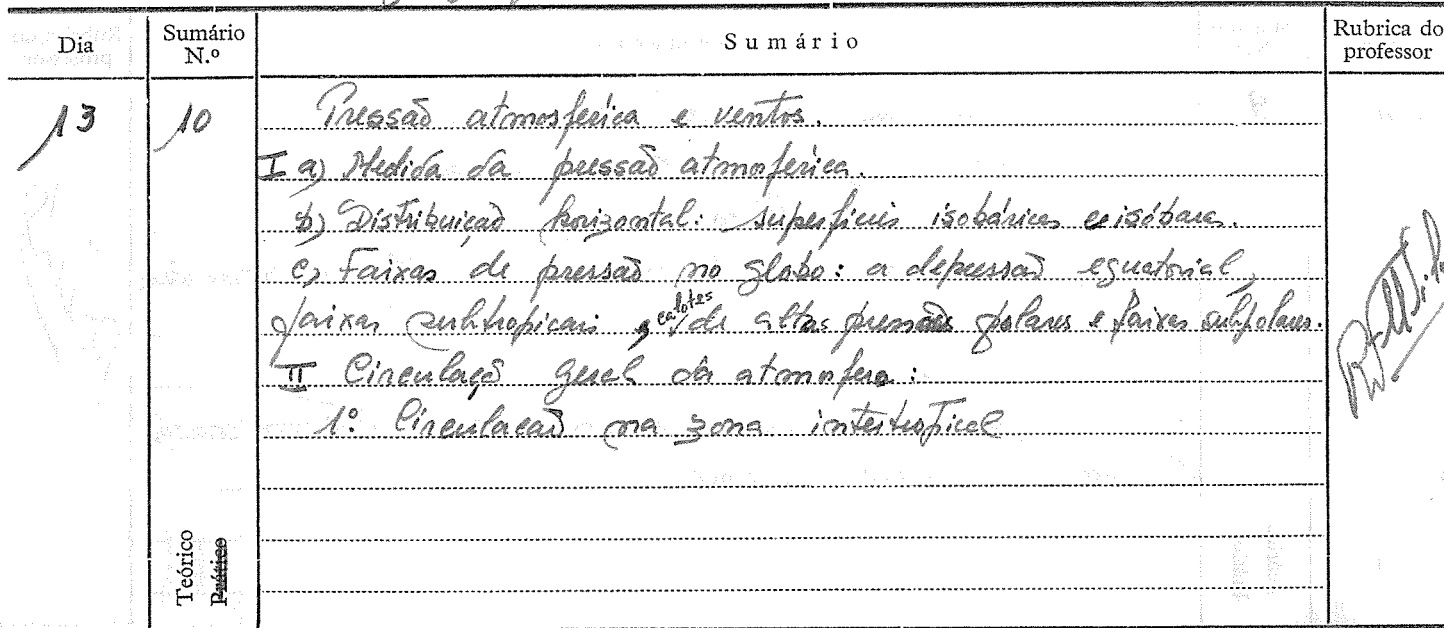 Dia Sumário N.º Sumário Rubrica do professor
13 10 Pressão atmosferica e ventos.
I a) Medida da pressão atmosferica.
b) Distribuição horizontal: superficies isobáricas e isóbaras.
c) Faixas de pressão no globo: a depressão equatorial,
faixas subtropicais e calotes de altas pressões polares e faixas subpolares.
II Circulação geral da atmosfera:
1º Circulacão na zona intertropical
Teórico
Prático